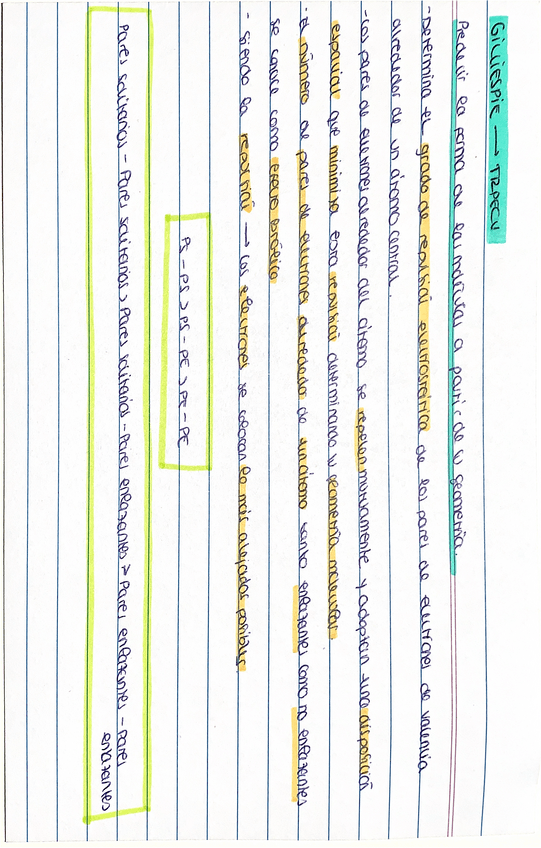 GILLIESPIE → TRPECV
Predecir la forma de las moléculas a partir de su geometría.
- Determina el grado de repulsión electrostática de los pares de electrones de valencia
alrededor de un átomo central.
- Los pares de electrones alrededor del átomo se repelen mutuamente y adoptan una disposición
espacial que minimiza esta repulsión determinando su geometría molecular.
- El número de pares de electrones alrededor de un átomo tanto enlazantes como no enlazantes
se conoce como estérico.
- Siendo la repulsión → Los electrones se colocan lo más alejados posibles.
PS - PS > PS - PE > PE - PE
Pares solitarios - Pares solitarios > Pares solitarios - Pares enlazantes > Pares enlazantes - Pares
enlazantes